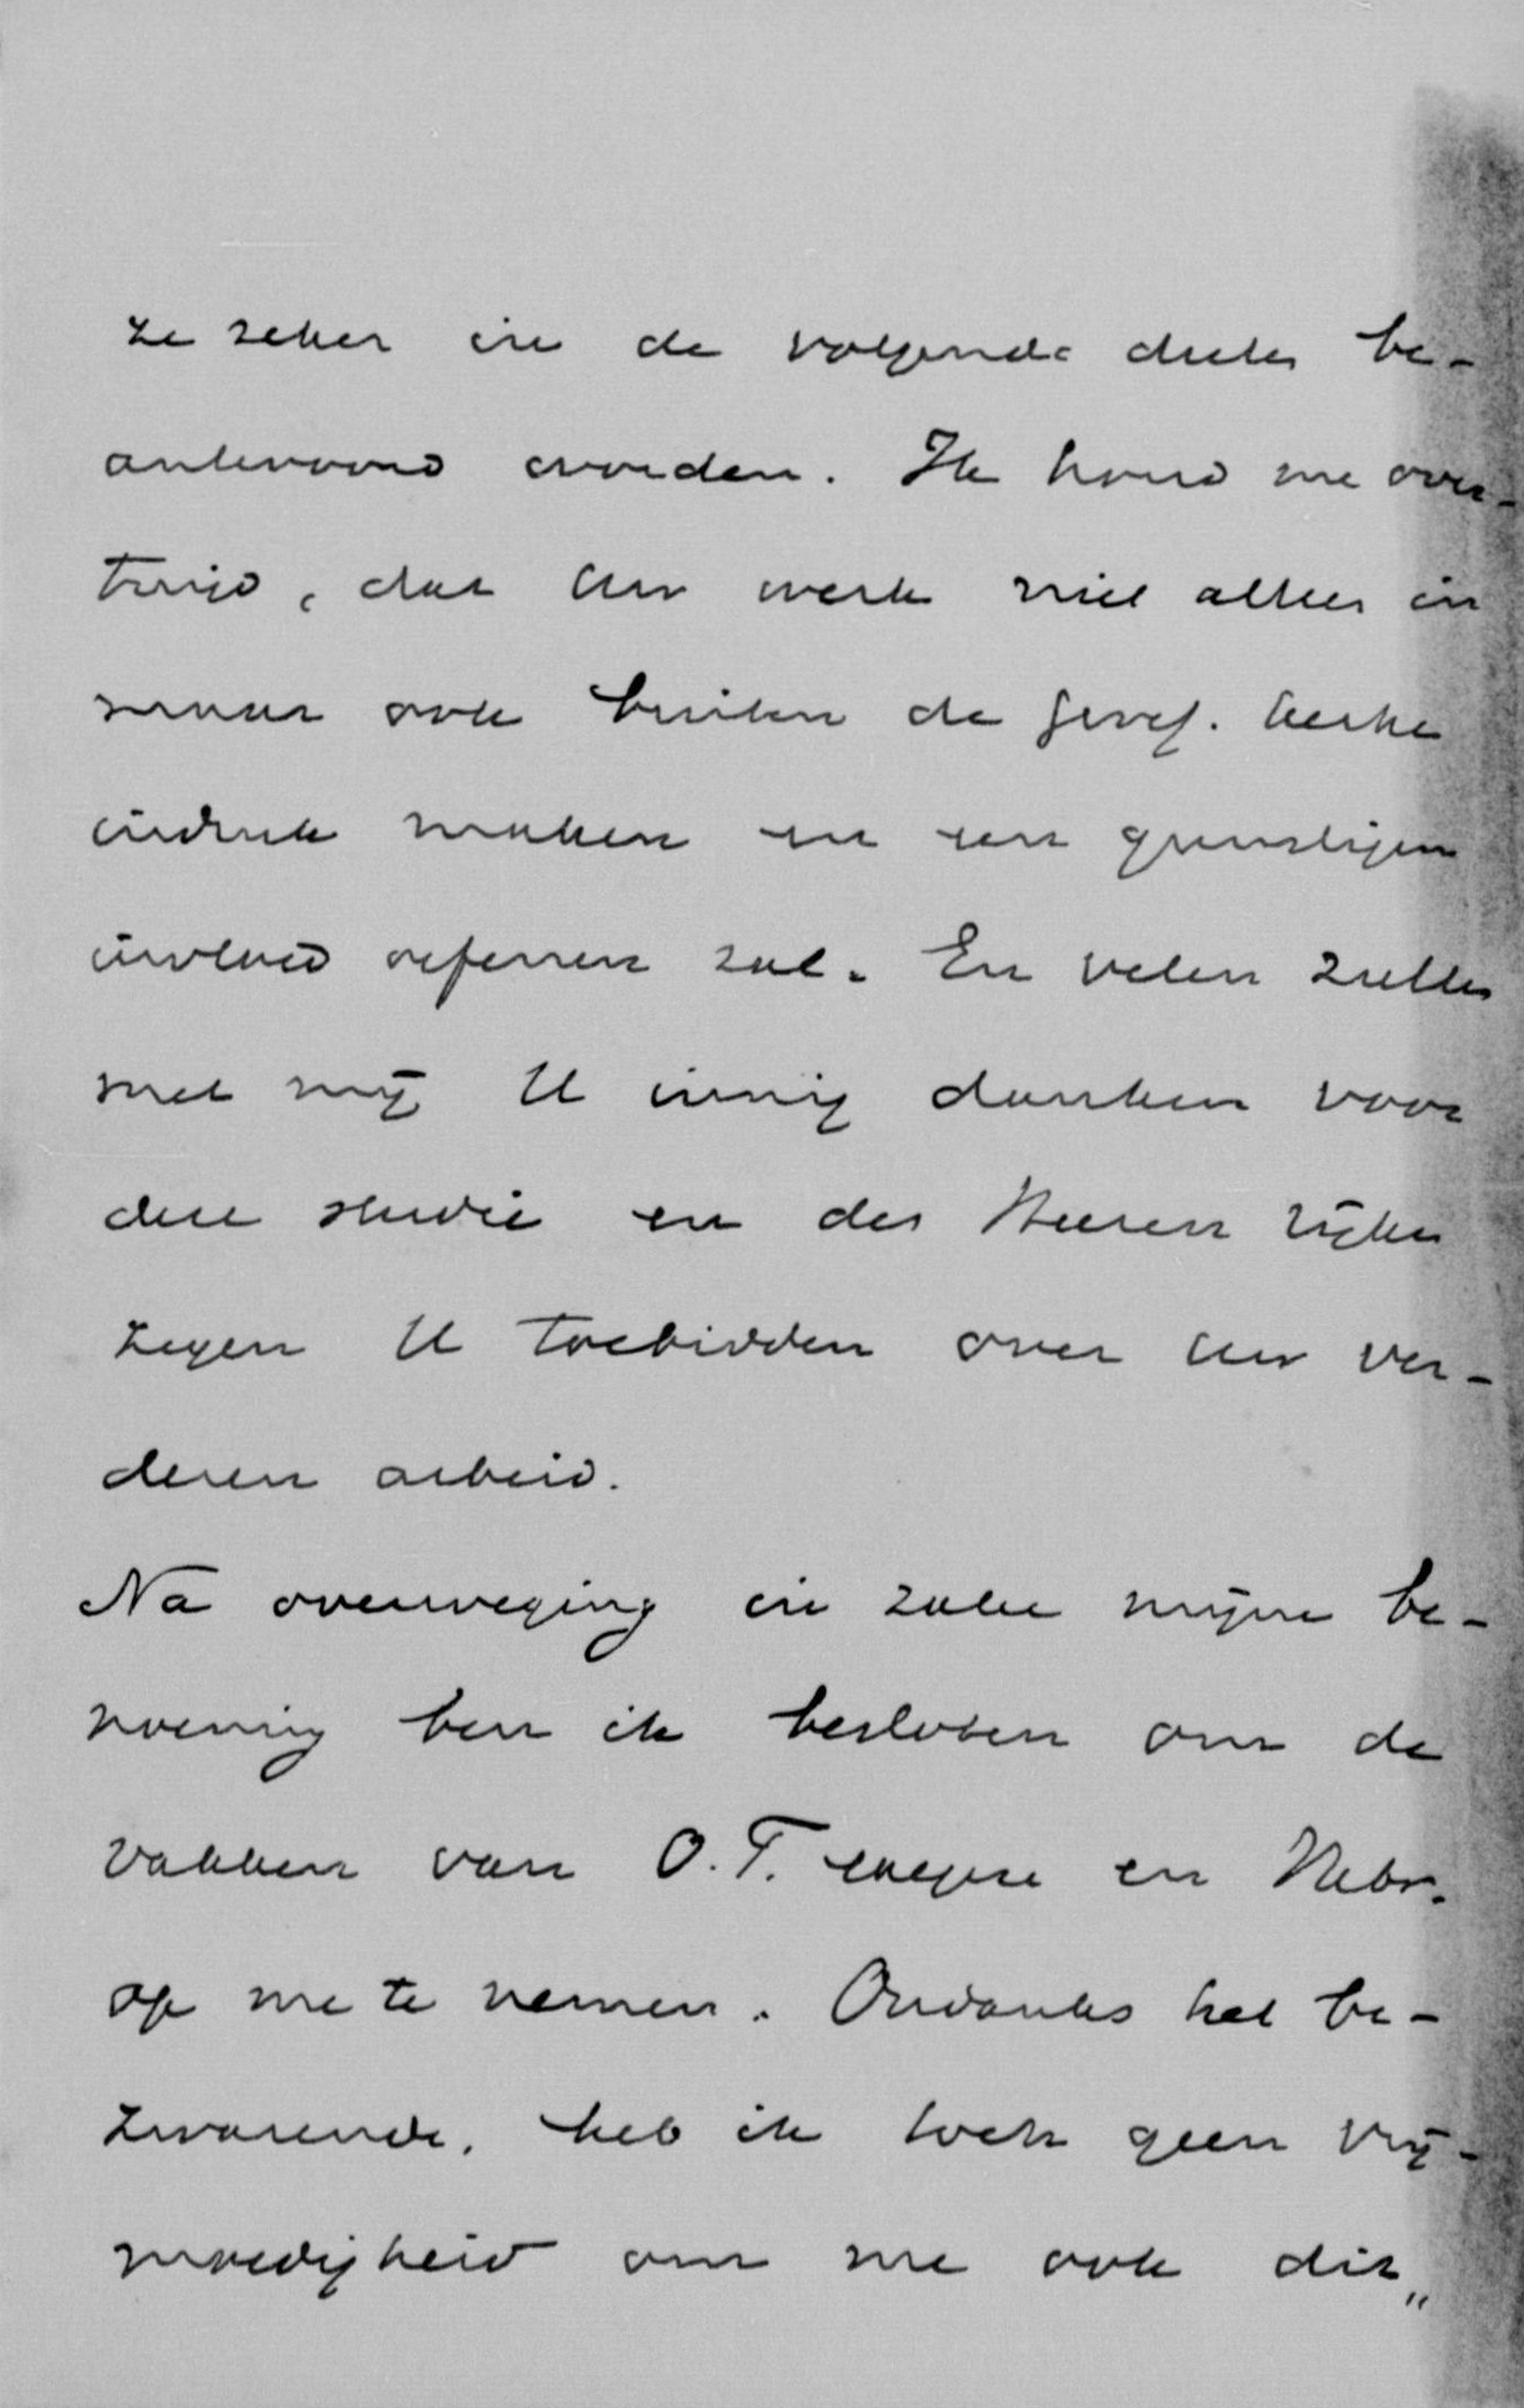 ze zeker in de volgende deelen be-
antwoord worden. Ik houd me over-
tuigd, dat Uw werk niet alleen in
maar ook buiten de geref. kerken
indruk maken en een gunstigen
invloed oefenen zal. En velen zullen
met mij U innig danken voor
deze studie en des Heeren rijken
zegen U toebidden over Uw ver-
deren arbeid.
Na overweging in zake mijne be-
noeming ben ik besloten om de
vakken van O.T. exegese en Hebr.
op me te nemen. Ondanks het be-
zwarende, heb ik toch geen vrij-
moedigheid om me ook dit„